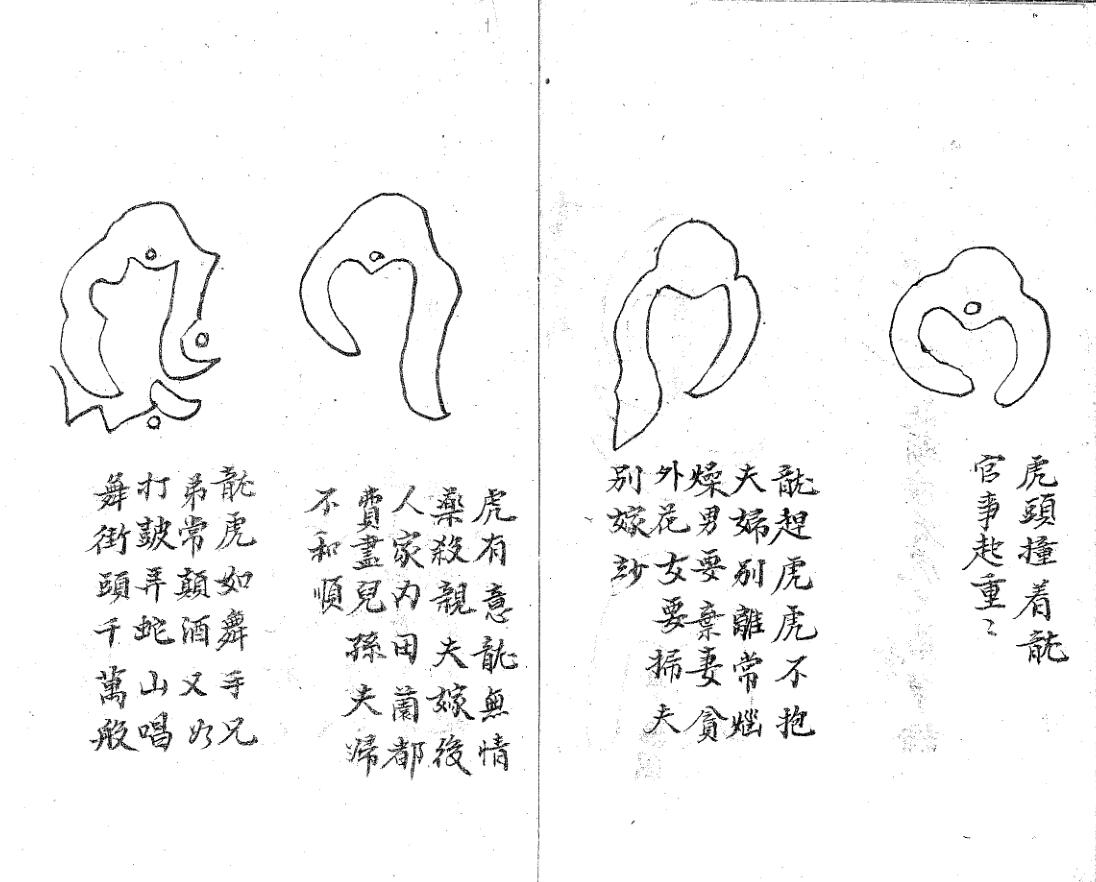 虎頭撞着龍
官事起重〻
龍趕虎虎不抱
夫婦別離常
燥男要棄妻貪
外花女要掃夫
別嫁
虎有意龍無情
藥殺親夫嫁後
人家内田薗都
費盡兒孫夫婦
不和順
龍虎如舞手兄
弟常顛酒又
打皷弄蛇山唱
舞街頭千萬般